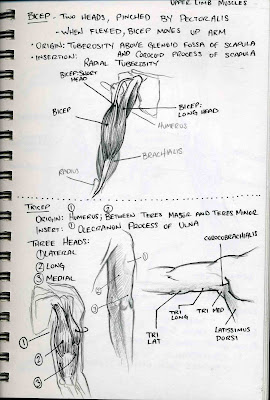 UPPER LIMB MUSCLES
BICEP - TWO HEADS, PINCHED BY PECTORALIS
- WHEN FLEXED, BICEP MOVES UP ARM
• ORIGIN: TUBEROSITY ABOVE GLENOID FOSSA OF SCAPULA
AND CORACOID PROCESS OF SCAPULA
• INSERTION:
RADIAL TUBEROSITY
BICEP: SHORT
HEAD
BICEP
BICEP:
LONG HEAD
HUMERUS
BRACHIALIS
RADIUS
TRICEP
ORIGIN: HUMERUS; BETWEEN TERES MAJOR AND TERES MINOR
INSERT: OLECRANON PROCESS OF ULNA
THREE HEADS:
① LATERAL
② LONG
③ MEDIAL
COROCOBRACHIALIS
TRI
LAT
TRI
LONG
TRI MED
LATISSIMUS
DORSI
①
②
③